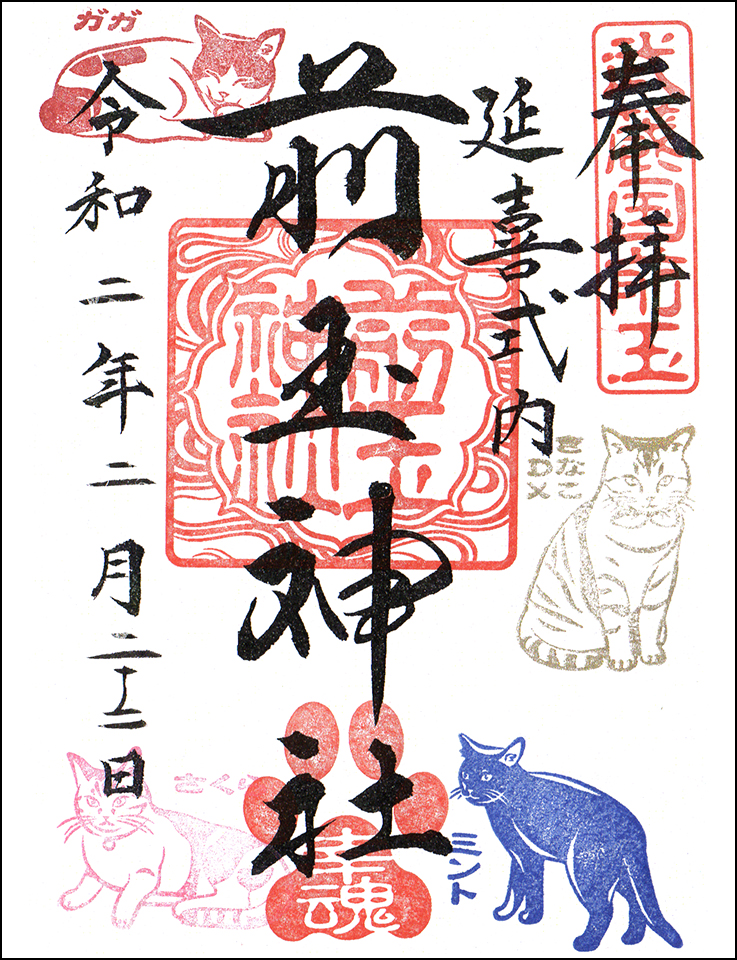 奉拝
武蔵国前玉
延喜式内
前玉神社
前玉神社
令和二年二月二十二日
ガガ
きなこ
DX
ミント
さくら
幸魂